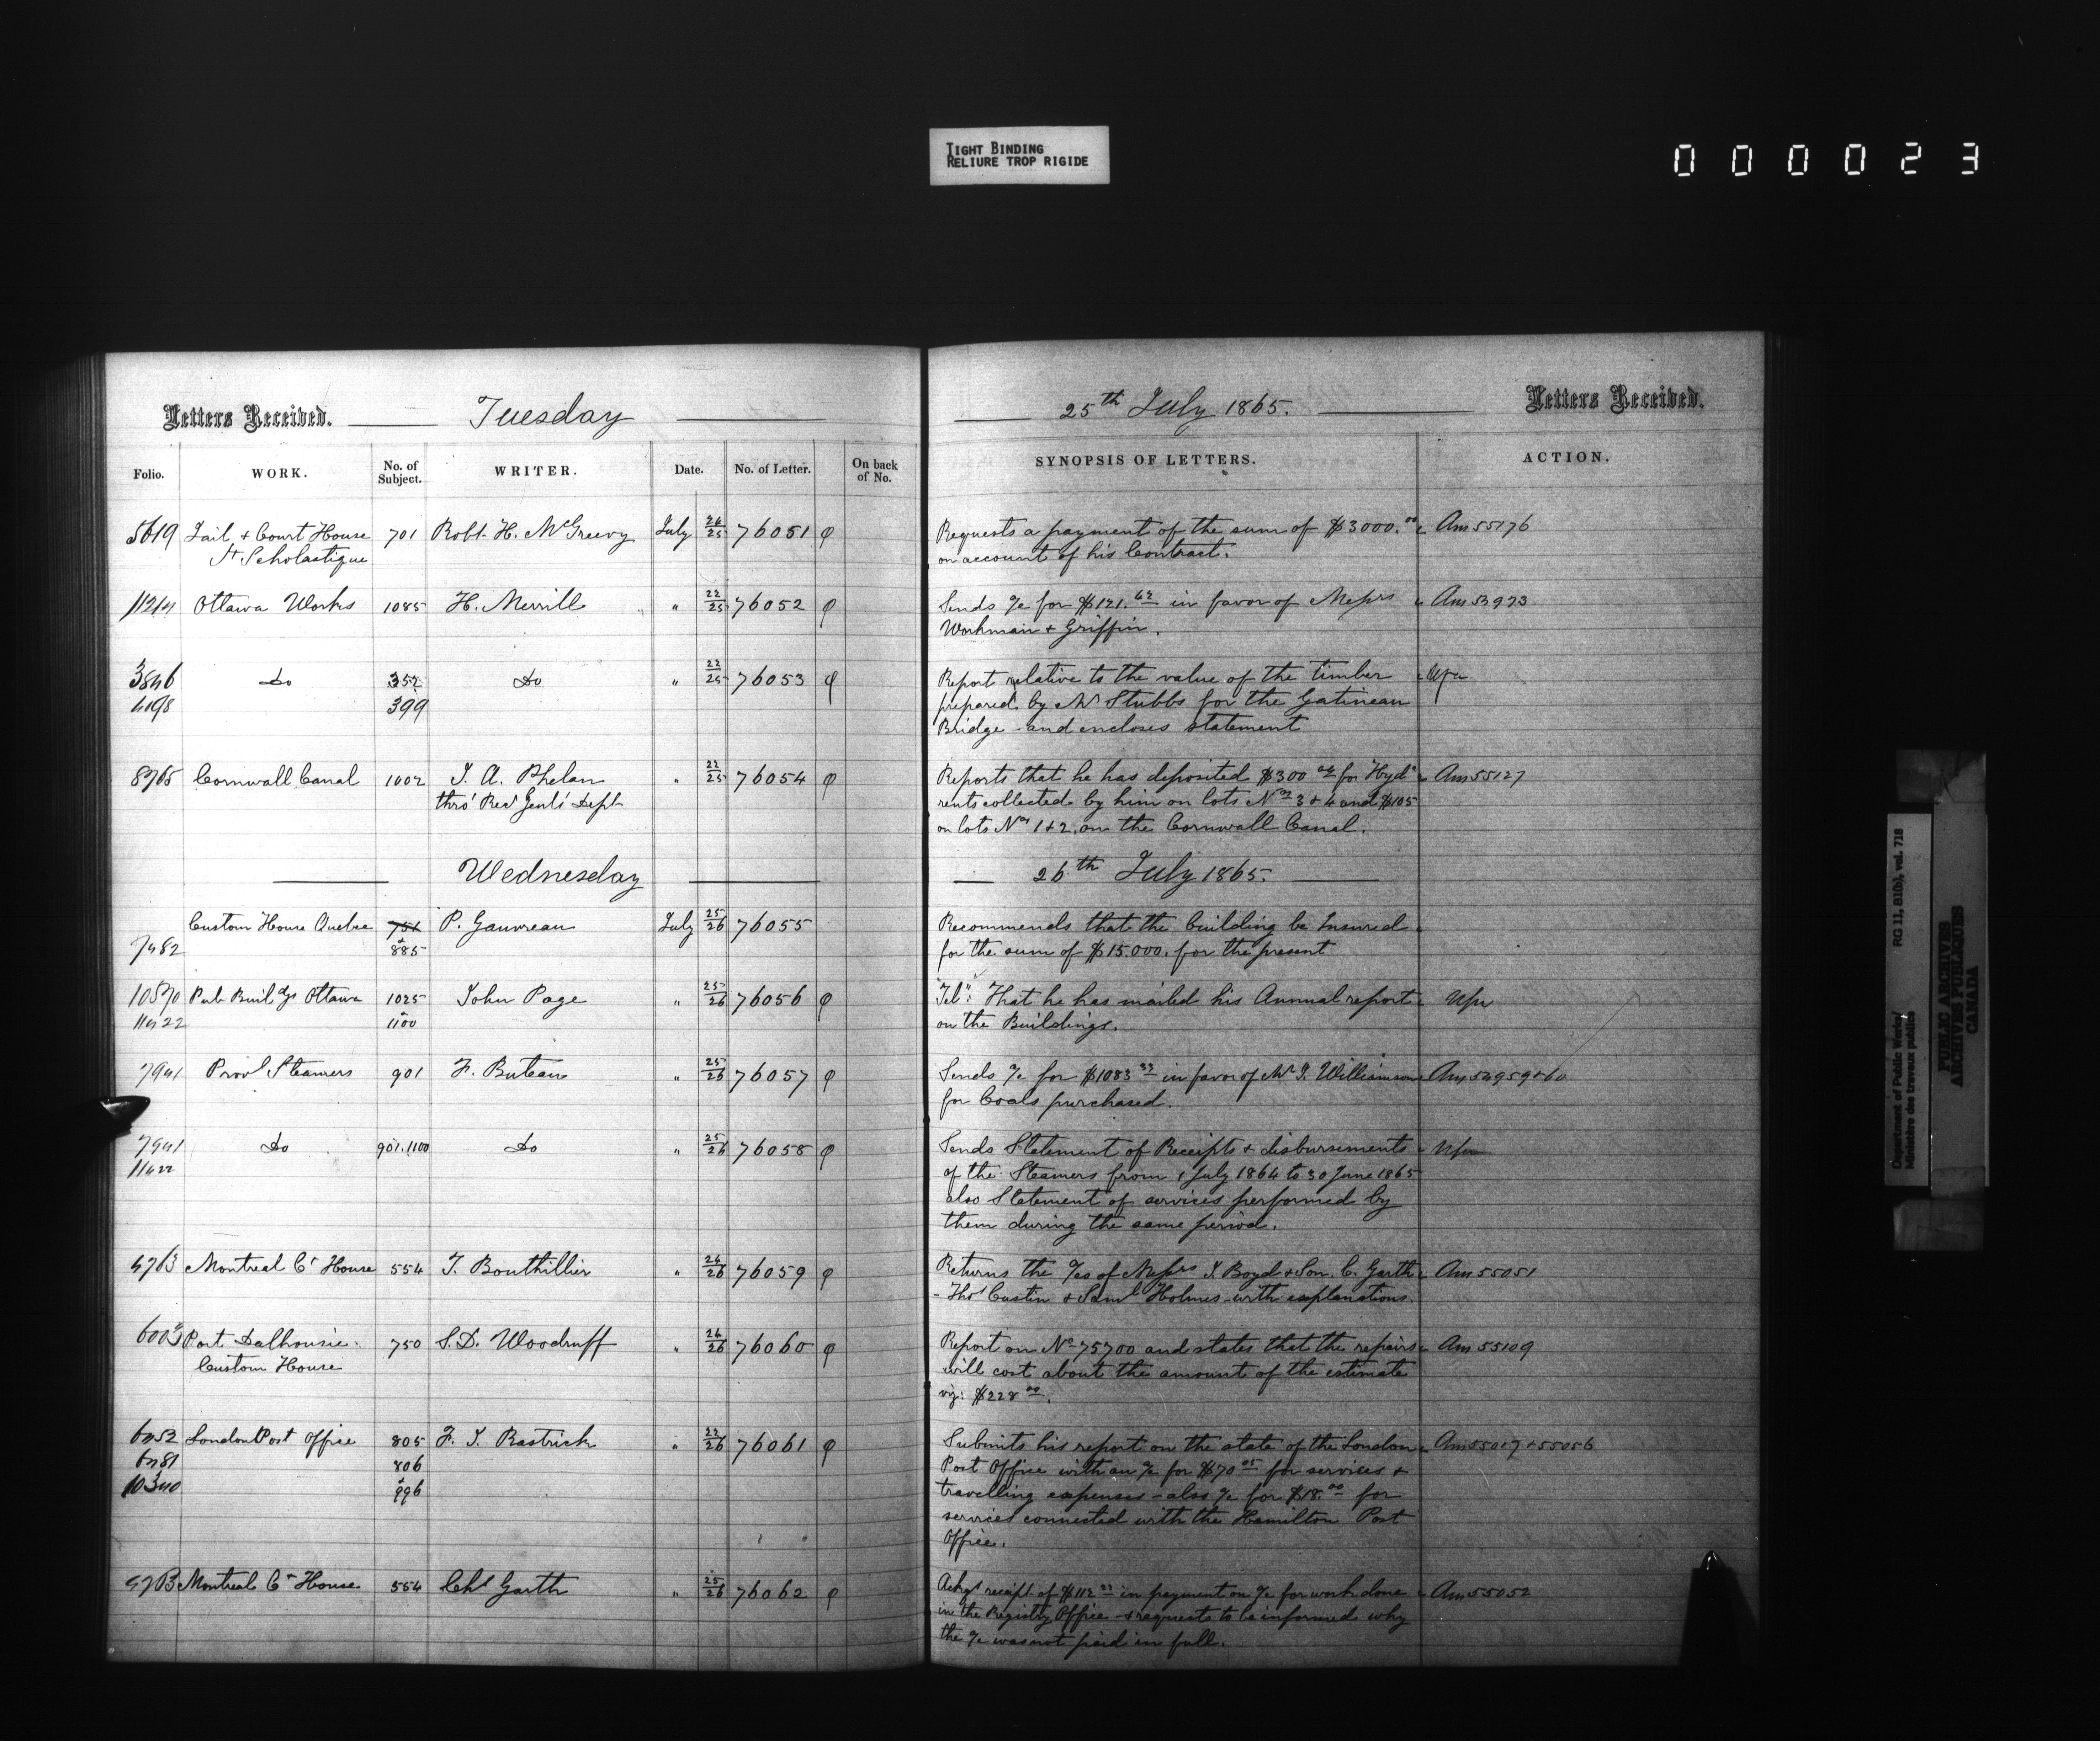 TIGHT BINDING
RELIURE TROP RIGIDE
000023
Letters Received. Tuesday 25th July 1865. Letters Received.
Folio. WORK. No. of Subject. WRITER. Date. No. of Letter. On back of No. SYNOPSIS OF LETTERS. ACTION.
5619 Jail & Court House 701 Robt. H. McGreevy July 24/25 76051 φ Requests a payment of the sum of $3000.00 Am 55176
St Scholastique on account of his Contract.
Ottawa Works 1085 H. Merrill " 22/25 76052 φ Sends a/c for $121.62 in favor of Messrs Am 53973
Workman & Griffin.
3846 Do 352 Do " 22/25 76053 φ Report relative to the value of the timber
4098 399 prepared by Mr Stubbs for the Gatineau
Bridge - and encloses statement
8765 Cornwall Canal 1002 J. A. Phelan " 22/25 76054 φ Reports that he has deposited $300 for Hydc Am 55127
thro' Recr Genls' Dept rents collected by him on lots Nos 3 & 4 and $105
on lots Nos 1 & 2. on the Cornwall Canal.
Wednesday 26th July 1865.
Custom House Quebec 751 P. Gauvreau July 25/26 76055 Recommends that the building be Insured
7482 & 885 for the sum of $15.000. for the present
10570 Pub Buildgs Ottawa 1025 John Page " 25/26 76056 φ Tel": That he has mailed his Annual report
11422 & 1100 on the Buildings.
7941 Provl Steamers 901 F. Buteau " 25/26 76057 φ Sends a/c for $1083 33 in favor of Mr J. Williamson Am 54959 & 60
for Coals purchased.
7941 Do 901.1100 Do " 25/26 76058 φ Sends Statement of Receipts & disbursements
11422 of the Steamers from 1 July 1864 to 30 June 1865
also Statement of services performed by
them during the same period.
4703 Montreal Ct House 554 T. Bouthillier " 24/26 76059 φ Returns the a/cs of Messrs J. Boyd & Son. C. Garth Am 55051
- Thos Custin & Saml Holmes with explanations.
6003 Port Dalhousie 750 S. D. Woodruff " 24/26 76060 φ Report on No 75700 and states that the repairs Am 55109
Custom House will cost about the amount of the estimate
viz: $228 00.
6452 London Post Office 805 F. J. Rastrick " 22/26 76061 φ Submits his report on the state of the London Am 55017 & 55056
6481 806 Post Office with an a/c for $70 05 for services &
10340 & 996 travelling expenses - also a/c for $18.00 for
services connected with the Hamilton Post
Office.
4703 Montreal Ct House 554 Chs Garth " 25/26 76062 φ Ackgs receipt of $112 in payment on a/c for work done Am 55052
in the Registry Office - & requests to be informed why
the a/c was not paid in full.
Department of Public Works/ RG 11, B1(b), vol. 718
Ministère des travaux publics
PUBLIC ARCHIVES
ARCHIVES PUBLIQUES
CANADA